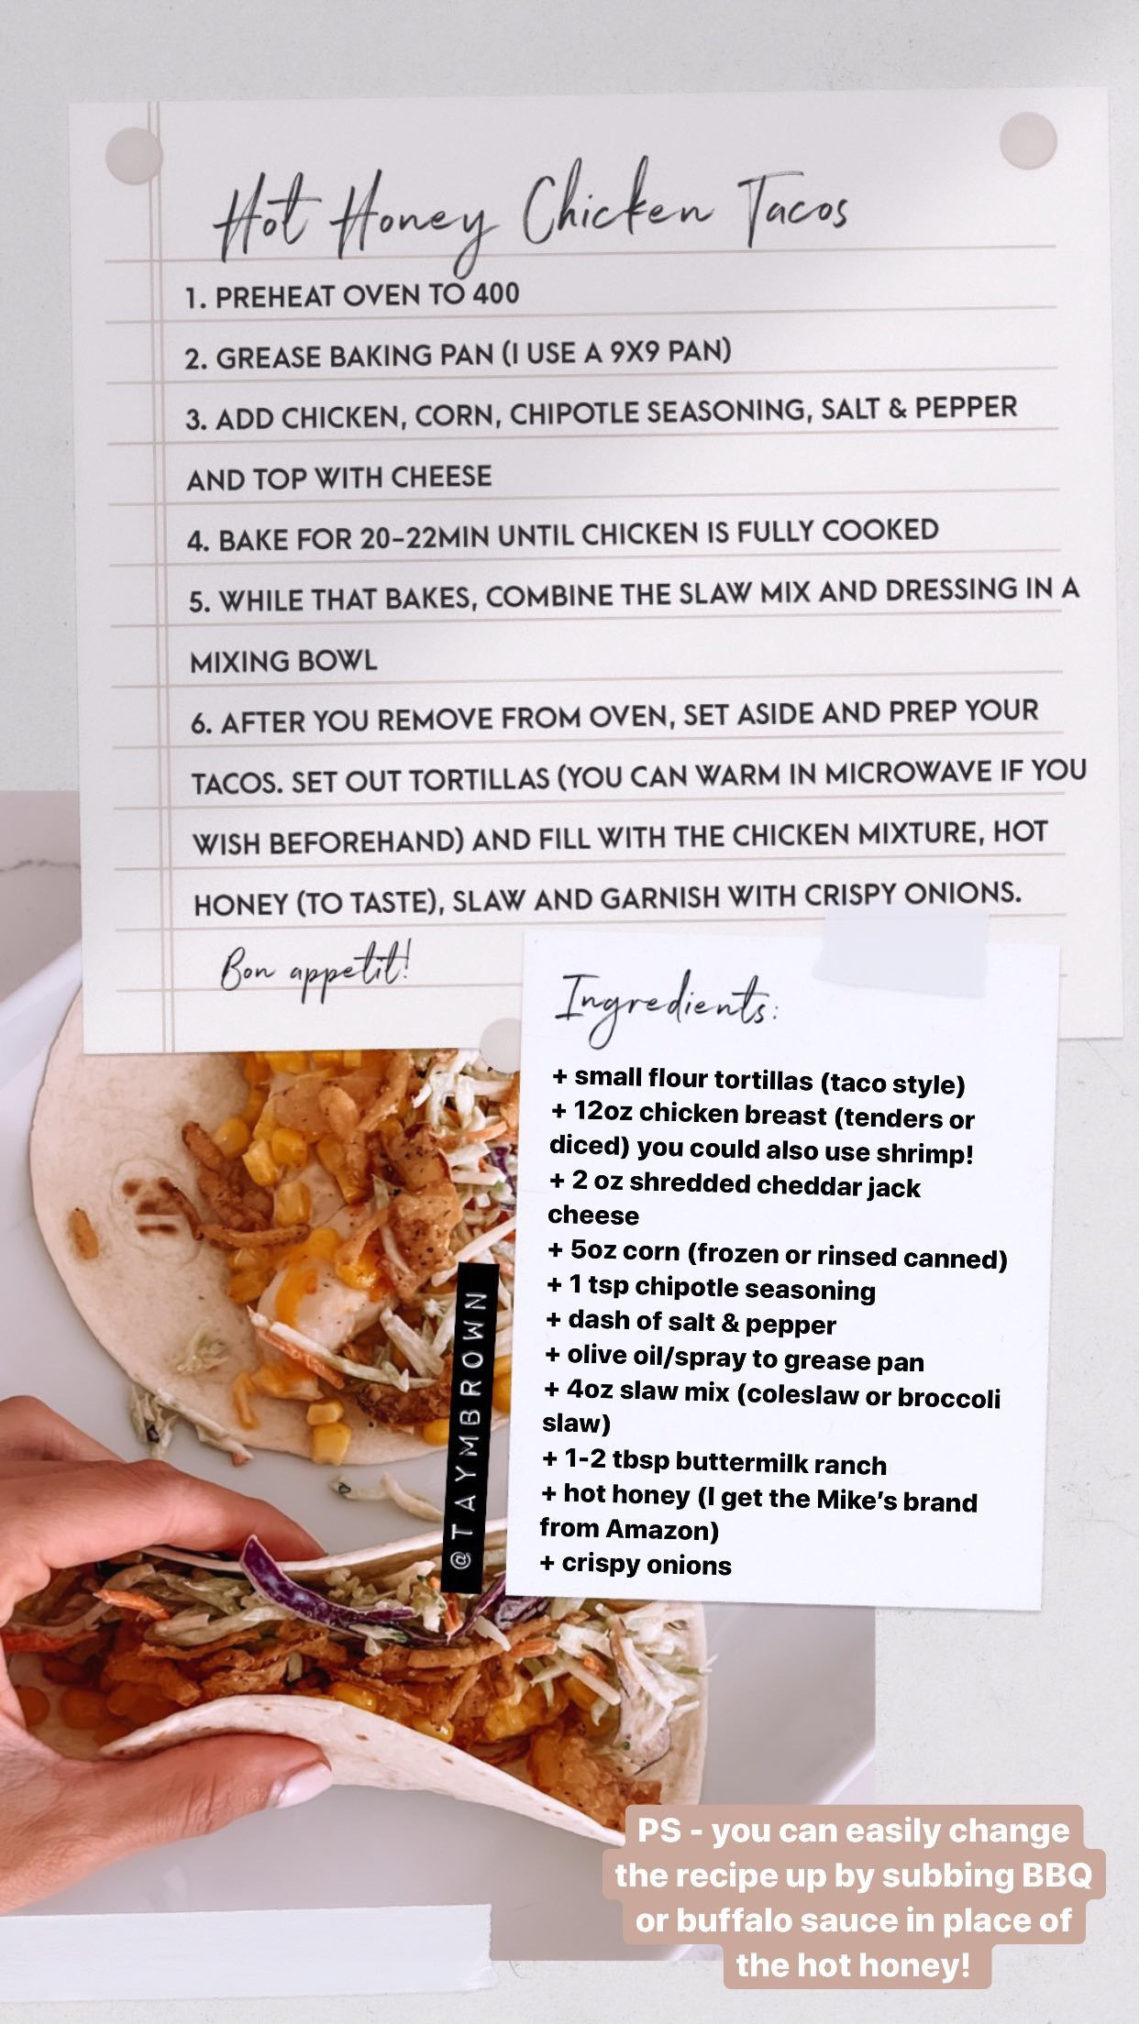 Hot Honey Chicken Tacos
1. PREHEAT OVEN TO 400
2. GREASE BAKING PAN (I USE A 9X9 PAN)
3. ADD CHICKEN, CORN, CHIPOTLE SEASONING, SALT & PEPPER
AND TOP WITH CHEESE
4. BAKE FOR 20-22MIN UNTIL CHICKEN IS FULLY COOKED
5. WHILE THAT BAKES, COMBINE THE SLAW MIX AND DRESSING IN A
MIXING BOWL
6. AFTER YOU REMOVE FROM OVEN, SET ASIDE AND PREP YOUR
TACOS. SET OUT TORTILLAS (YOU CAN WARM IN MICROWAVE IF YOU
WISH BEFOREHAND) AND FILL WITH THE CHICKEN MIXTURE, HOT
HONEY (TO TASTE), SLAW AND GARNISH WITH CRISPY ONIONS.
Bon appetit!
Ingredients:
+ small flour tortillas (taco style)
+ 12oz chicken breast (tenders or
diced) you could also use shrimp!
+ 2 oz shredded cheddar jack
cheese
+ 5oz corn (frozen or rinsed canned)
+ 1 tsp chipotle seasoning
+ dash of salt & pepper
+ olive oil/spray to grease pan
+ 4oz slaw mix (coleslaw or broccoli
slaw)
+ 1-2 tbsp buttermilk ranch
+ hot honey (I get the Mike's brand
from Amazon)
+ crispy onions
@TAYMBROWN
PS - you can easily change
the recipe up by subbing BBQ
or buffalo sauce in place of
the hot honey!